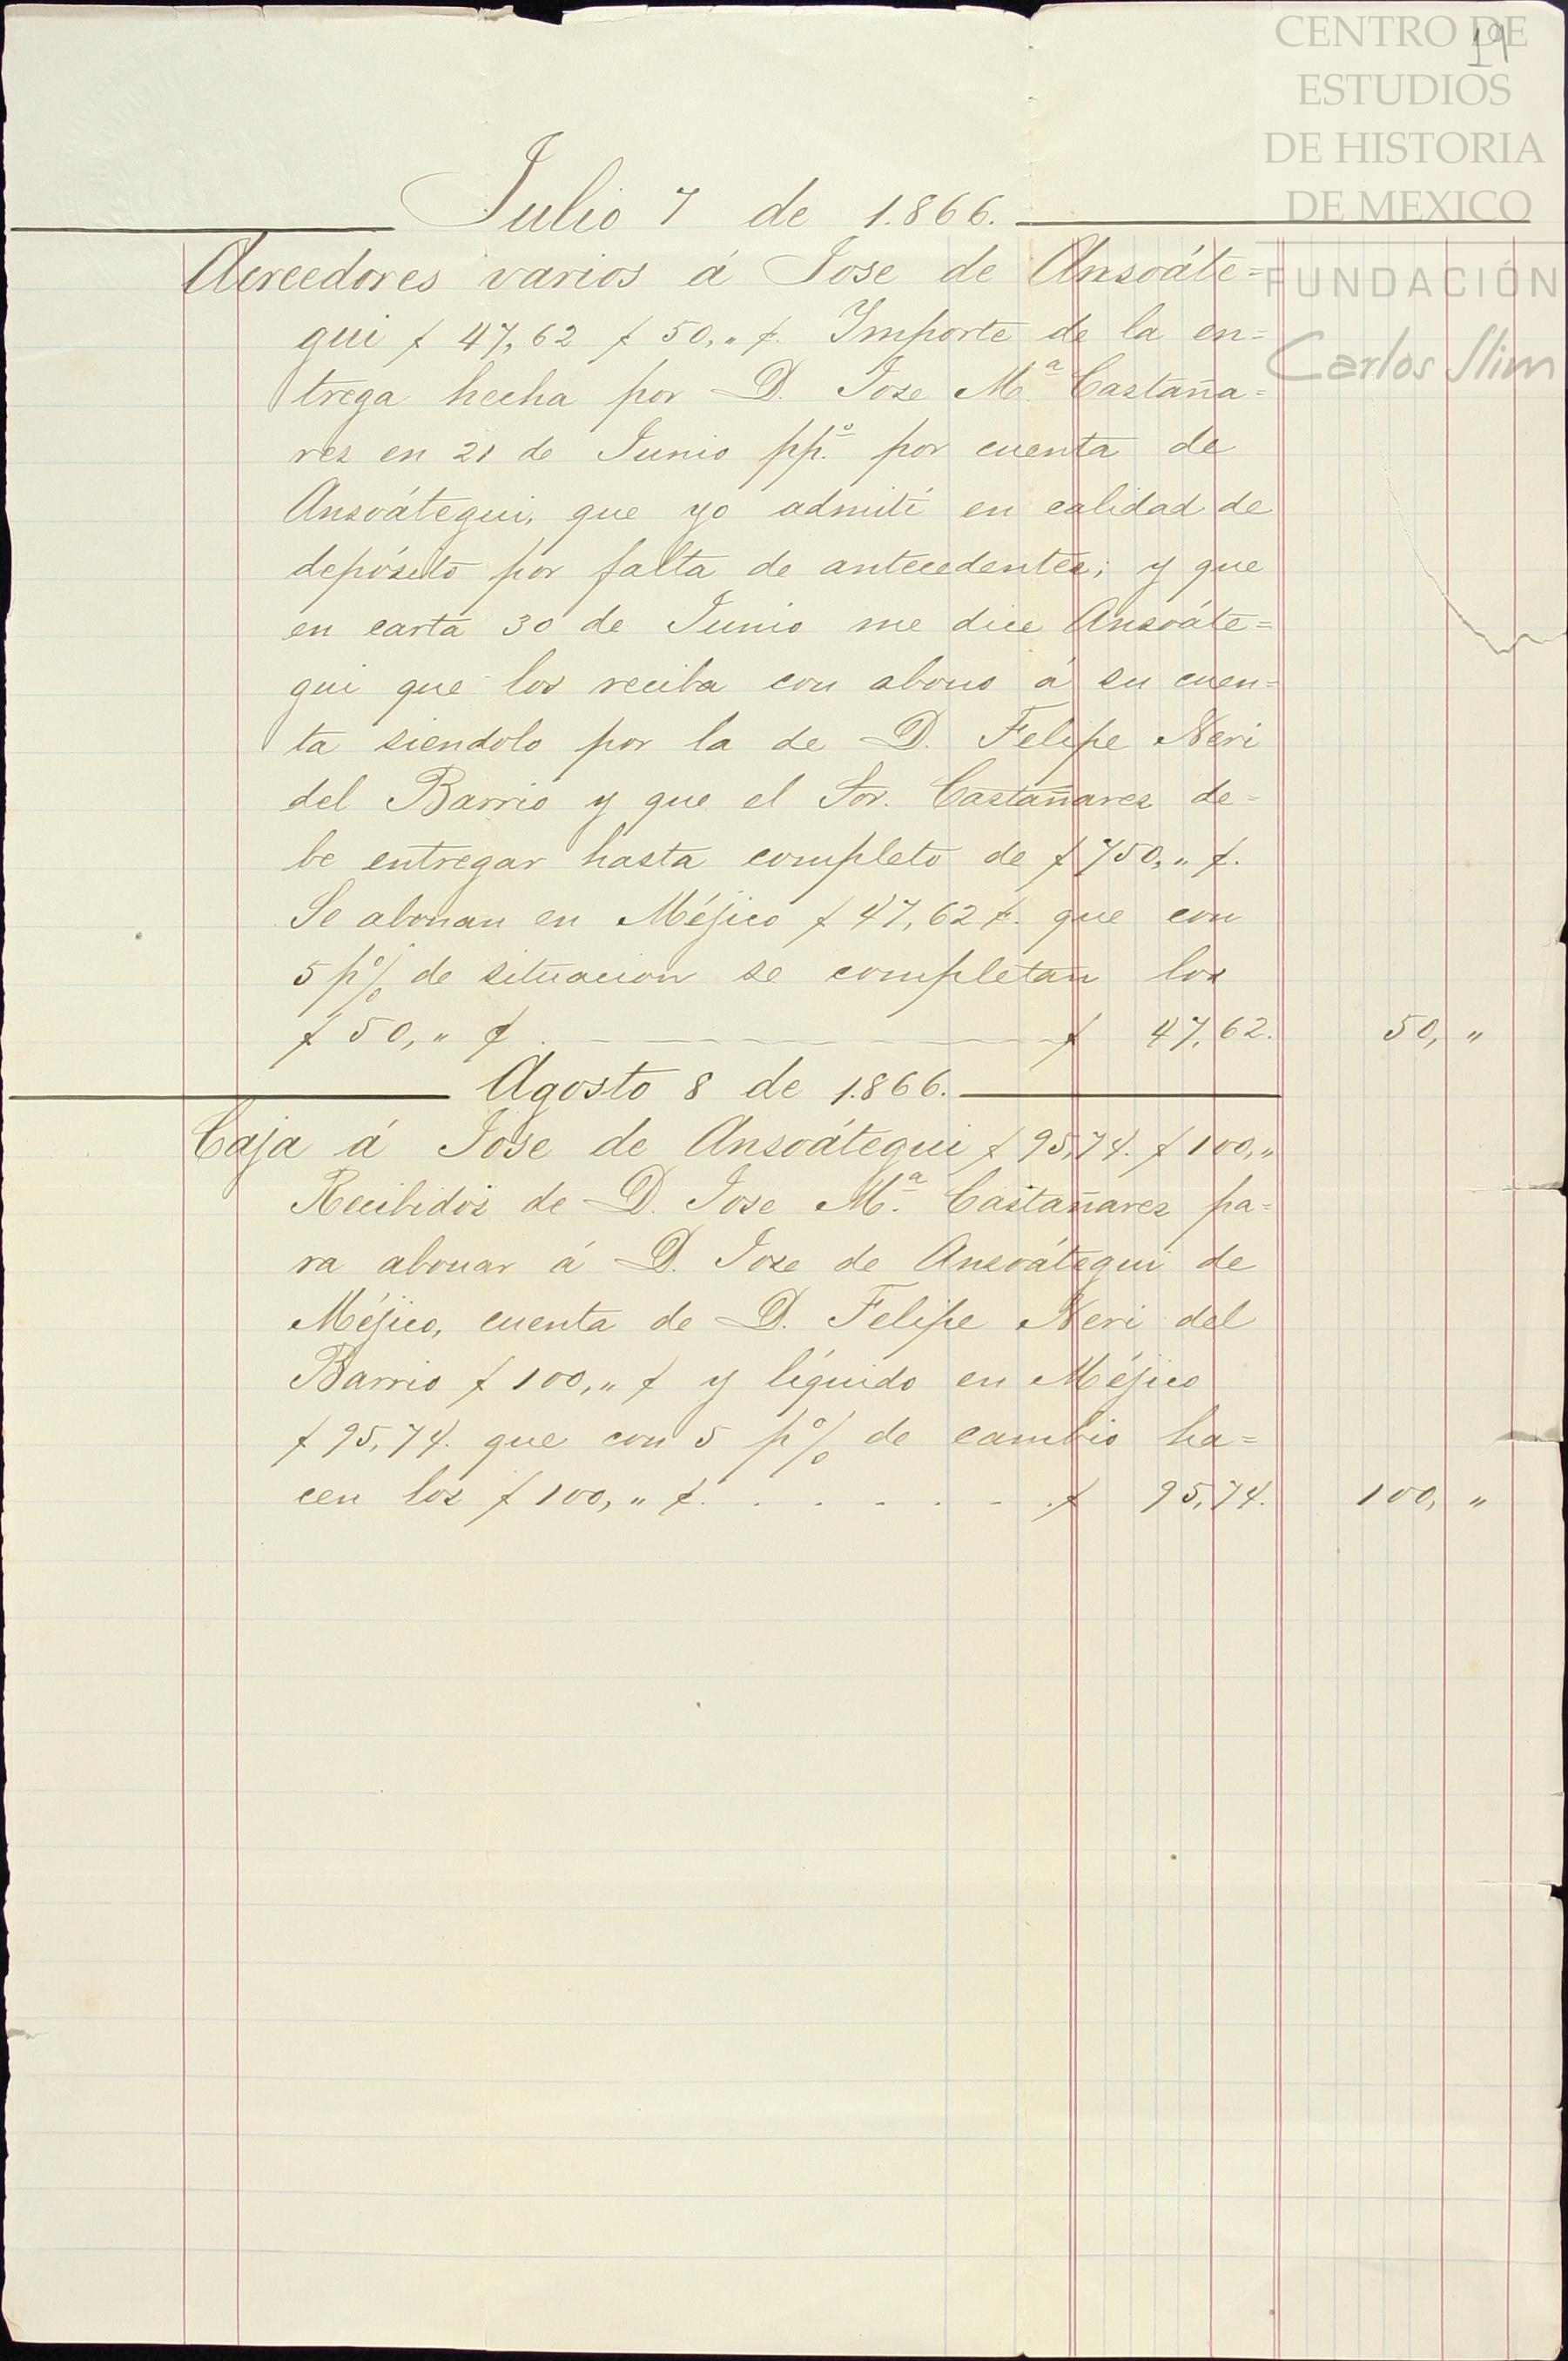 CENTRO DE
ESTUDIOS
DE HISTORIA
DE MEXICO
FUNDACIÓN
Carlos Slim
19
Julio 7 de 1.866.
Acreedores varios á Jose de Ansoáte=
gui $ 47,62 $ 50,,, ¢. Importe de la en=
trega hecha por D. Jose Mª. Castaña=
res en 21 de Junio pp.º por cuenta de
Ansoátegui, que yo admití en calidad de
depósito por falta de antecedentes; y que
en carta 30 de Junio me dice Ansoáte=
gui que los reciba con abono á su cuen=
ta siendolo por la de D. Felipe Neri
del Barrio y que el Sor. Castañares de=
be entregar hasta completo de $ 750,,, ¢.
Se abonan en Méjico $ 47,62 ¢. que con
5 p% de situacion se completan los
$ 50,,, ¢. $ 47,62. 50, "
Agosto 8 de 1.866.
Caja á Jose de Ansoátegui $ 95,74. $ 100,,,
Recibidos de D. Jose Mª. Castañares pa=
ra abonar á D. Jose de Ansoátegui de
Méjico, cuenta de D. Felipe Neri del
Barrio $ 100,,, ¢ y líquido en Méjico
$ 95,74. que con 5 p% de cambio ha=
cen los $ 100,,, ¢. . . . . . . $ 95,74. 100, "